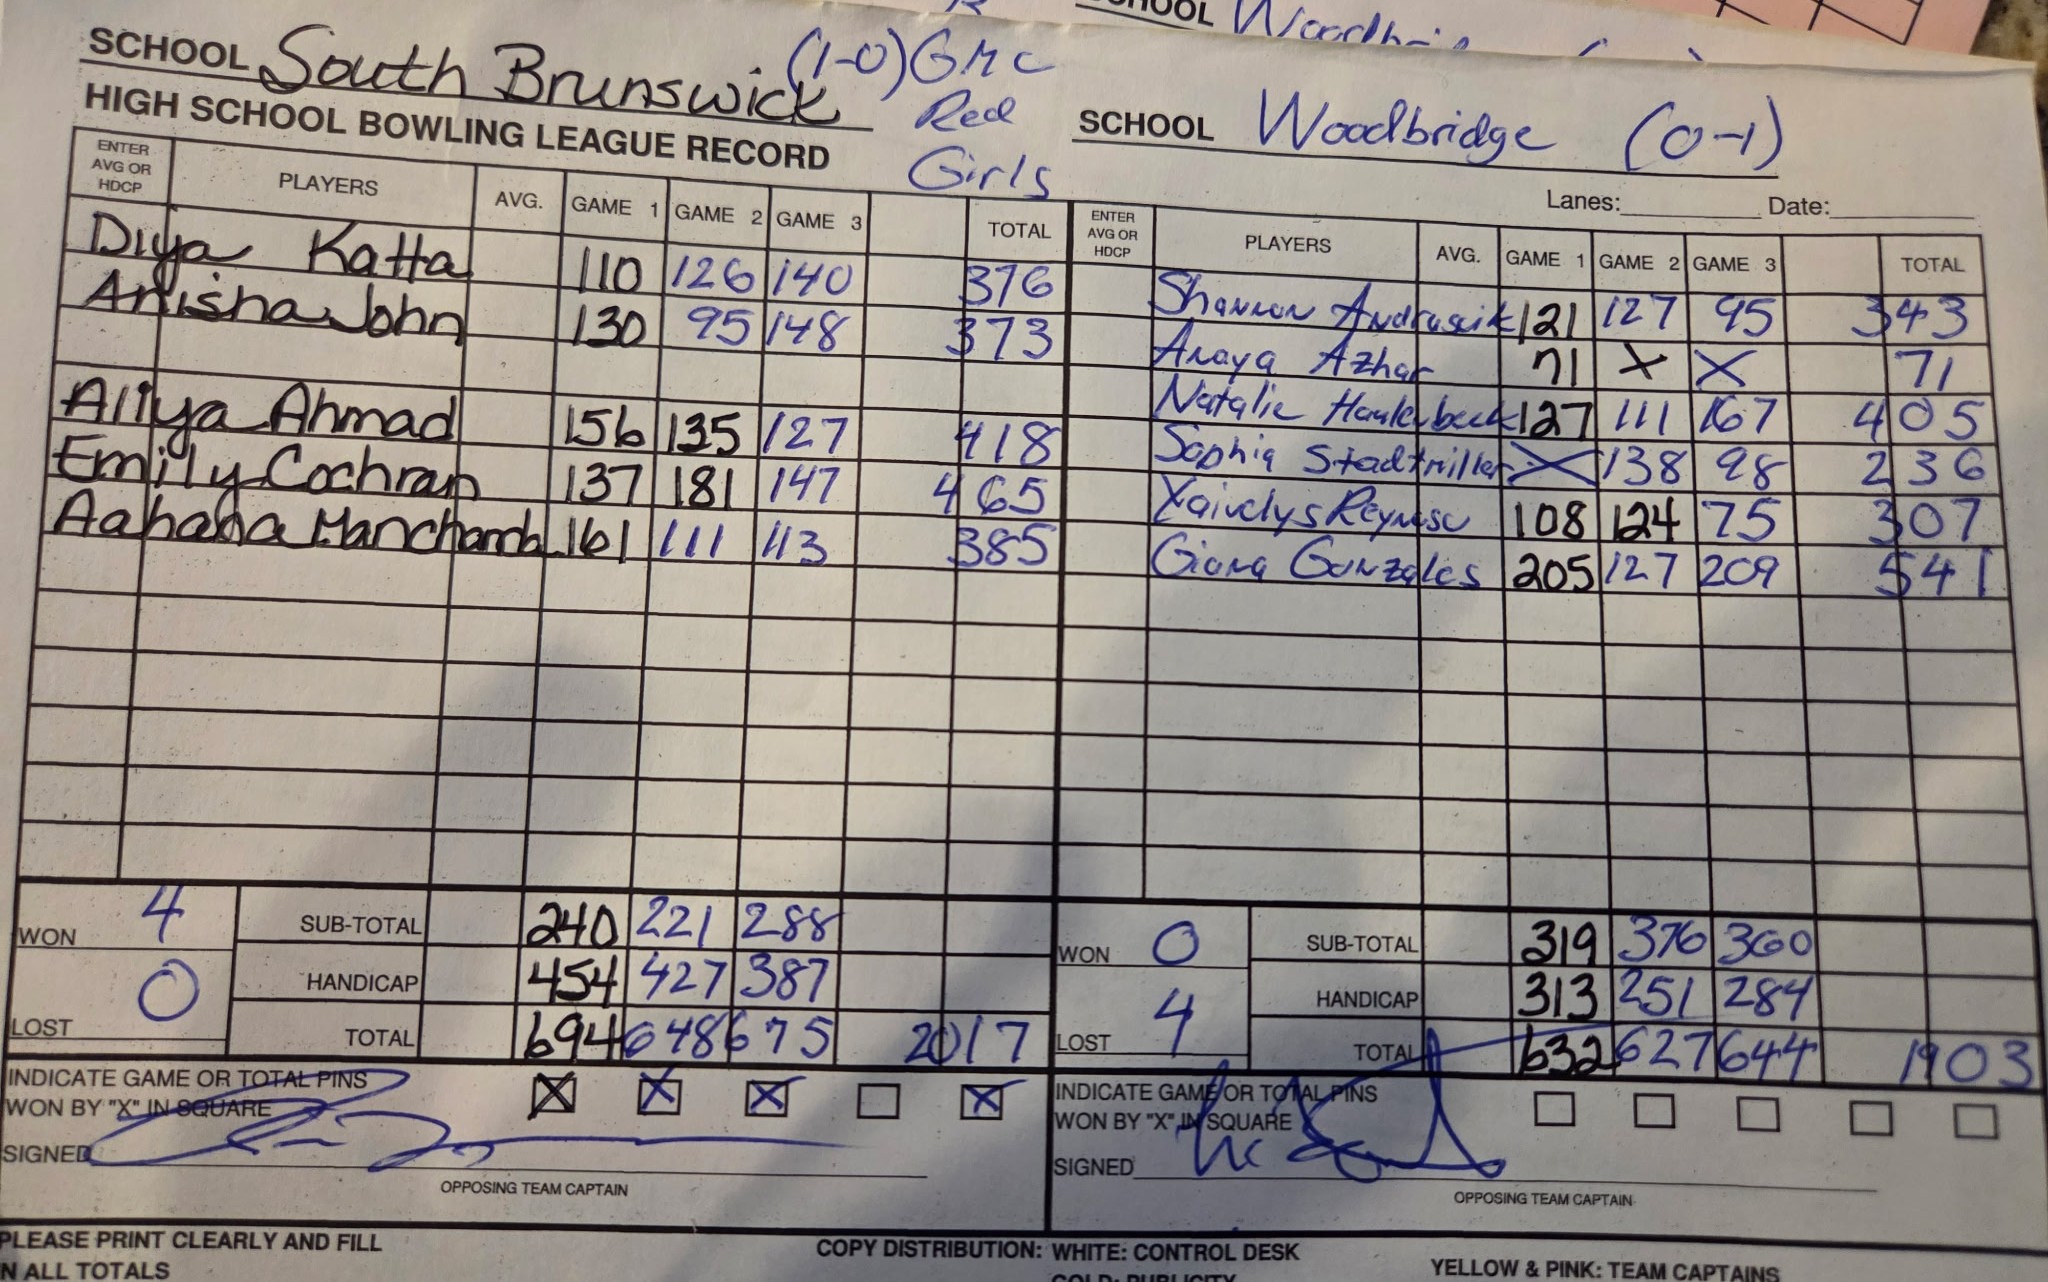 SCHOOL Woodbridge
SCHOOL South Brunswick (1-0) GMC
Red
Girls
HIGH SCHOOL BOWLING LEAGUE RECORD
SCHOOL Woodbridge (0-1)
Lanes: Date:
ENTER AVG OR HDCP PLAYERS AVG. GAME 1 GAME 2 GAME 3 TOTAL
Diya Katta 110 126 140 376
Anisha John 130 95 148 373
Aliya Ahmad 156 135 127 418
Emily Cochran 137 181 147 465
Aahana Manchanda 161 111 113 385
WON 4
LOST 0
SUB-TOTAL 240 221 288
HANDICAP 454 427 387
TOTAL 694 648 675 2017
INDICATE GAME OR TOTAL PINS
WON BY "X" IN SQUARE X X X X
SIGNED
OPPOSING TEAM CAPTAIN
ENTER AVG OR HDCP PLAYERS AVG. GAME 1 GAME 2 GAME 3 TOTAL
Shannon Andruscik 121 127 95 343
Anaya Azhar 71 X X 71
Natalie Haulenbeck 127 111 167 405
Sophia Stadtmiller X 138 98 236
Xaivelys Reynoso 108 124 75 307
Giana Gonzales 205 127 209 541
WON 0
LOST 4
SUB-TOTAL 319 376 360
HANDICAP 313 251 284
TOTAL 632 627 644 1903
INDICATE GAME OR TOTAL PINS
WON BY "X" IN SQUARE
SIGNED
OPPOSING TEAM CAPTAIN
PLEASE PRINT CLEARLY AND FILL
N ALL TOTALS
COPY DISTRIBUTION: WHITE: CONTROL DESK
GOLD: PUBLICITY
YELLOW & PINK: TEAM CAPTAINS